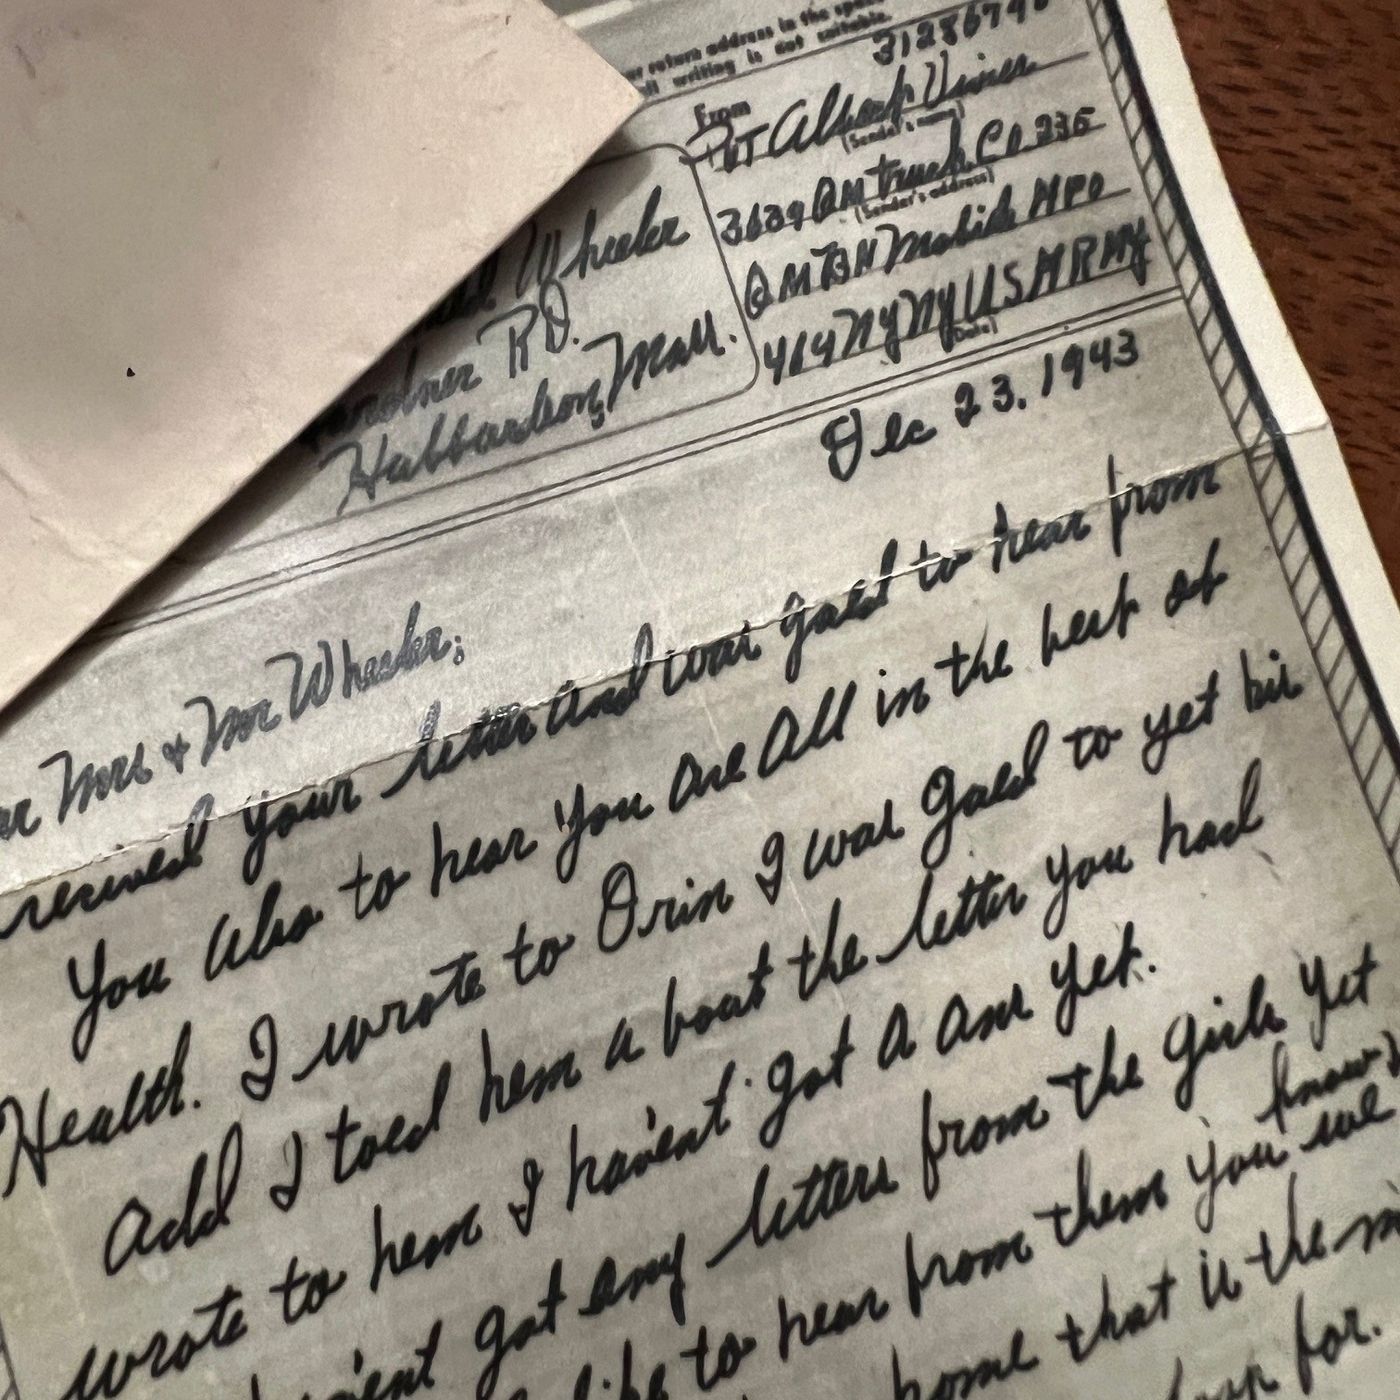 return address in the space
writing is not suitable.
From
Pvt Albert Viner
(Sender's name)
3639 QM Truck Co 235
(Sender's address)
QMBN Mobile APO
464 NY NY US ARMY
(Date)
Wheeler
Gardner RD.
Hubbardston, Mass.
Dec 23, 1943
Mrs & Mr Wheeler;
recived your letter and was gald to hear from
you also to hear you are all in the best of
Health. I wrote to Orin I was gald to get his
add I toed hem a bout the letter you had
wrote to hem I havent got a ans yet.
got any letters from the girls yet
like to hear from them you know
we
home that is the
for.